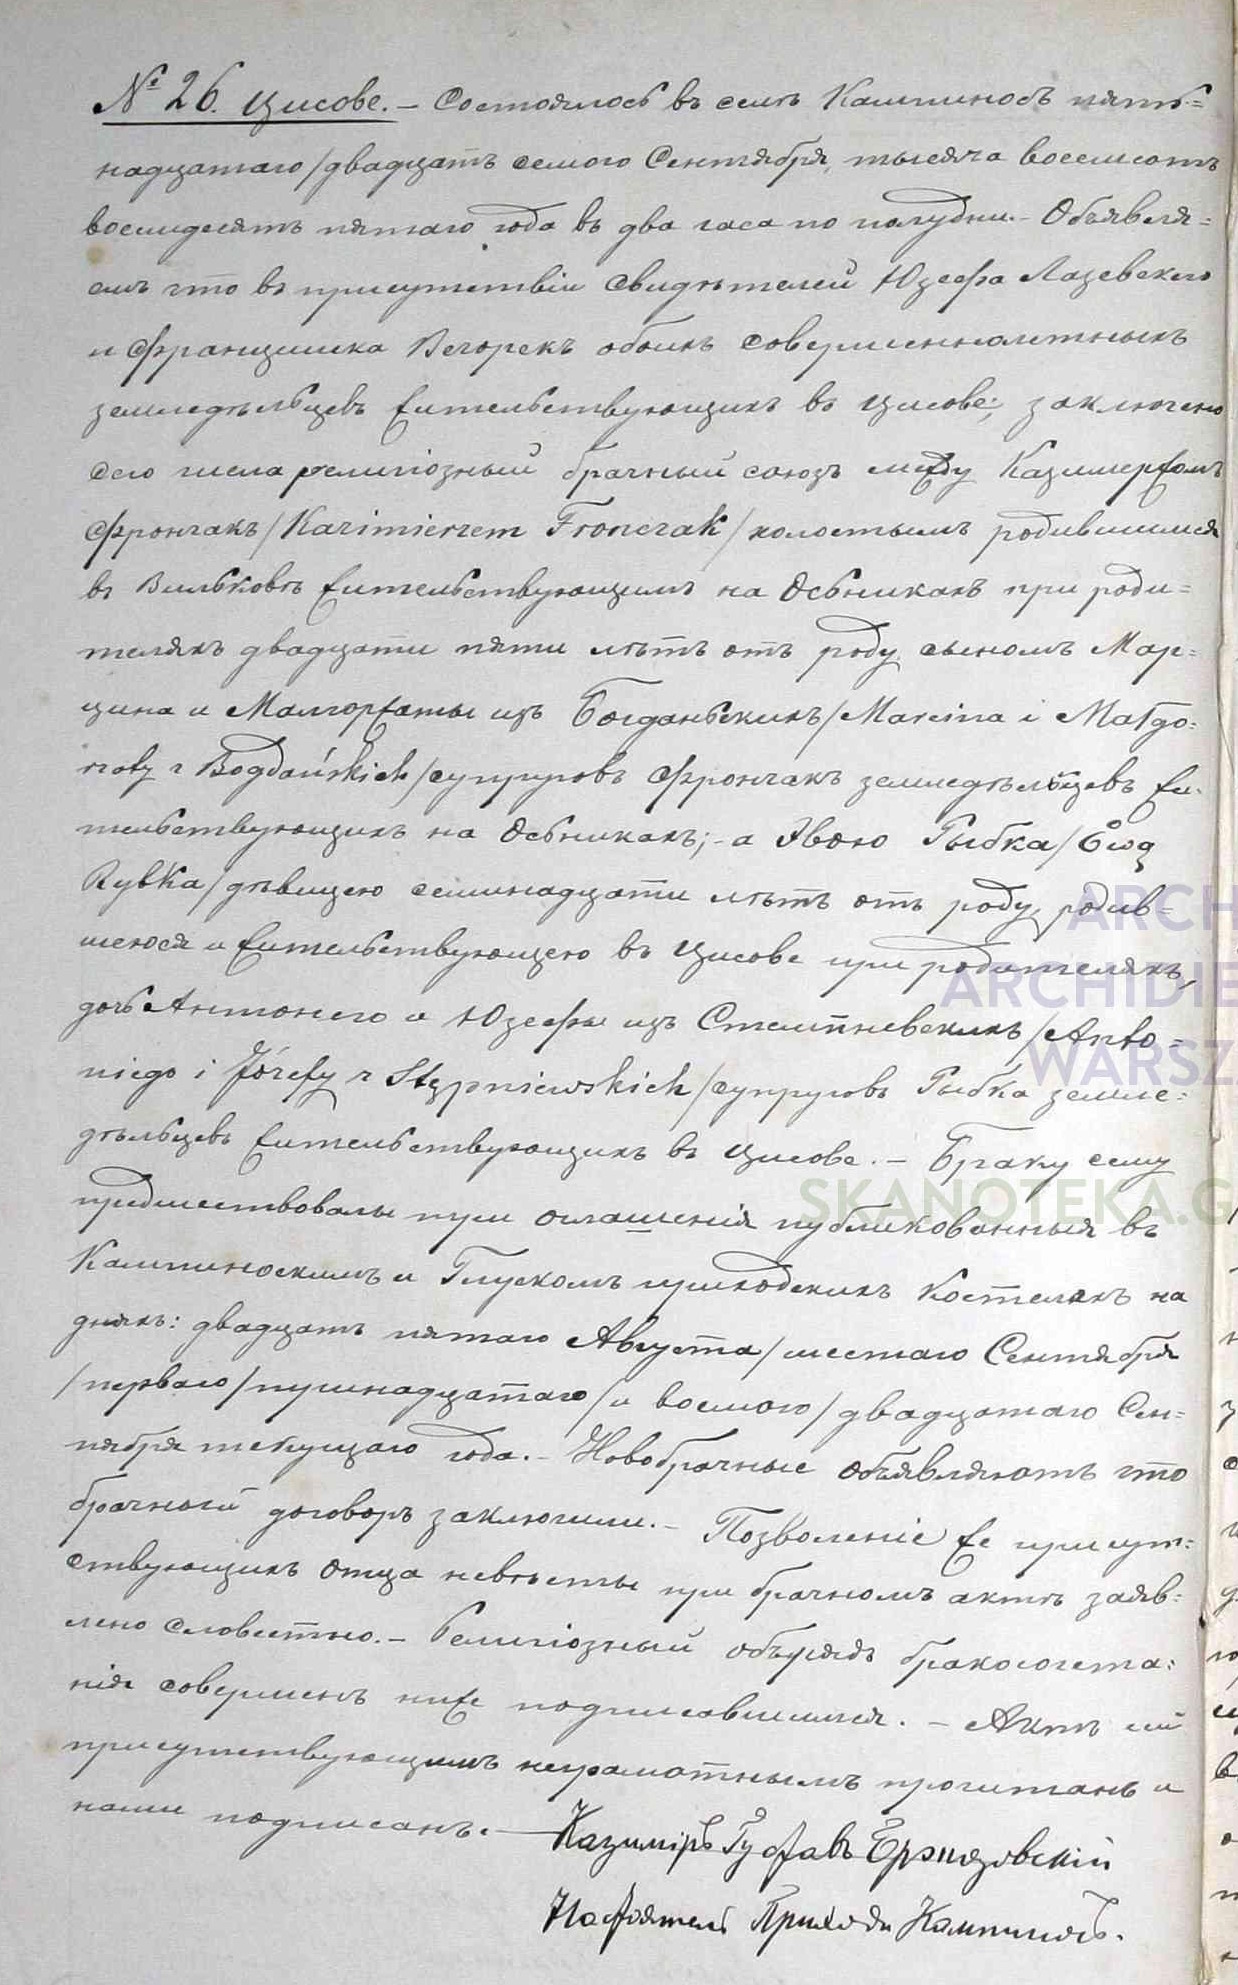 № 26. Цисове. – Состоялось въ селѣ Кампиносъ пят=
надцатаго/двадцать седмого Сентября, тысяча восемсотъ
восмидесятъ пятаго года въ два часа по полудни. – Объявля=
емъ что въ присутствіи свидѣтелей Юзефа Лазевскаго
и Францишка Вегорекъ обоихъ совершеннолѣтныхъ
земледѣльцевъ жительствующихъ въ Цисове; заключено
сего числа религіозный брачный союзъ между Казимержомъ
Фрончакъ/Kazimierzem Fronczak/холостымъ родившимся
въ Вильковѣ жительствующимъ на Осьникахъ при роди=
теляхъ двадцати пяти лѣтъ отъ роду, сыномъ Мар=
цина и Малгоржаты изъ Богданьскихъ/Marcina i Małgo=
rzaty z Bogdańskich/супруговъ Фрончакъ земледѣльцевъ жи=
тельствующихъ на Осьникахъ; – а Эвою Рыбка/Ewą
Rybka/дѣвицею семинадцати лѣтъ отъ роду, родив=
шеюся и жительствующею въ Цисове при родителяхъ,
дочь Антонего и Юзефы изъ Стемпневскихъ/Anto=
niego i Józefy z Stępniewskich/супруговъ Рыбка земле=
дѣльцевъ жительствующихъ въ Цисове. – Браку сему
предшествовалы три оглашенія публикованныя въ
Кампиноскимъ и Глускомъ приходскихъ костелахъ на
дняхъ: двадцатъ пятаго Августа/шестаго Сентября
/перваго/тринадцатаго/и восмого/двадцатаго Сен=
тября текущаго года. – Новобрачные объявляютъ что
брачный договоръ заключили. – Позволеніе же присут=
ствующихъ отца невѣсты при брачномъ актѣ заяв=
лено словестно. – Религіозный обърядъ бракосочета=
нія совершенъ ниже подписавшимся. – Актъ сій
присутствующимъ неграмотнымъ прочитанъ и
нами подписанъ. –
Казиміръ Густавъ
Настоятель Прихода Кампиносъ.
ARCH
ARCHIDIE
WARSZ
SKANOTEKA.G